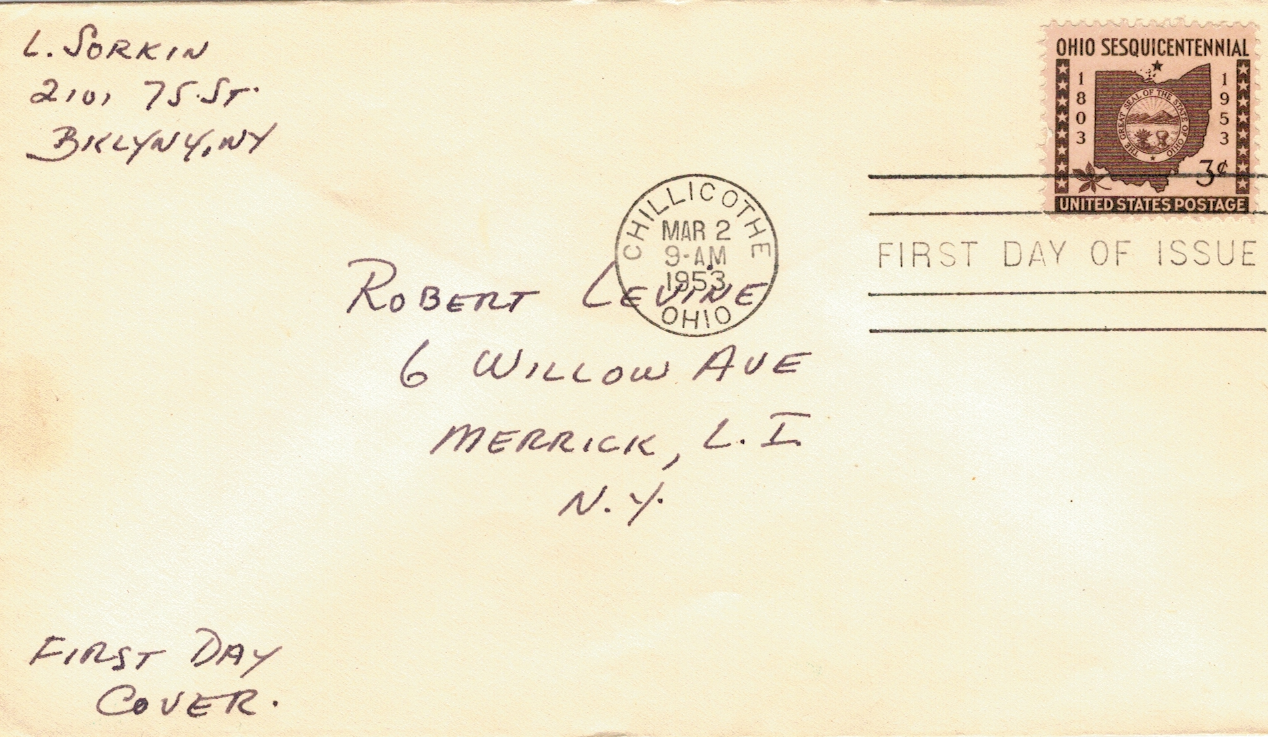 L. SORKIN
2101 75 ST.
BKLYNY, NY
OHIO SESQUICENTENNIAL
1803
1953
THE GREAT SEAL OF THE STATE OF OHIO
3¢
UNITED STATES POSTAGE
CHILLICOTHE
MAR 2
9-AM
1953
OHIO
FIRST DAY OF ISSUE
ROBERT LEVINE
6 WILLOW AVE
MERRICK, L. I.
N. Y.
FIRST DAY
COVER.